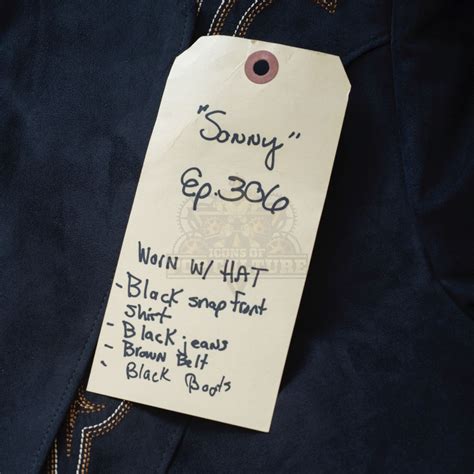 "Sonny"
Ep. 306
ICONS OF
CULTURE
WORN W/ HAT
- Black snap front
shirt
- Black jeans
- Brown Belt
- Black Boots